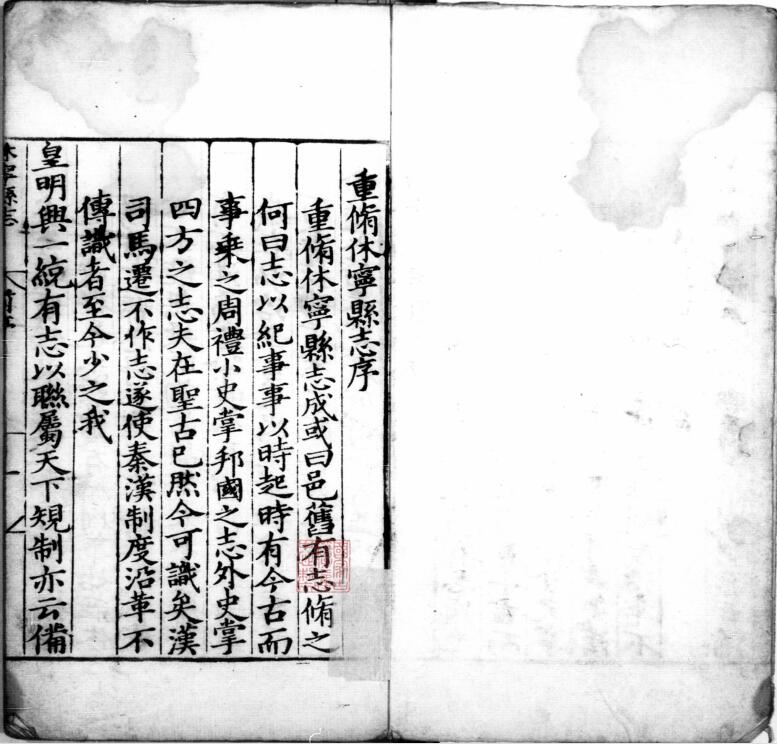 重脩休寧縣志序
重脩休寧縣志成或曰邑舊有志脩之
何曰志以紀事事以時起時有今古而
事乗之周禮小史掌邦國之志外史掌
四方之志夫在聖古已然今可識矣漢
司馬遷不作志遂使秦漢制度沿革不
傳識者至今少之我
皇明興一統有志以聯屬天下規制亦云備
休寧縣志